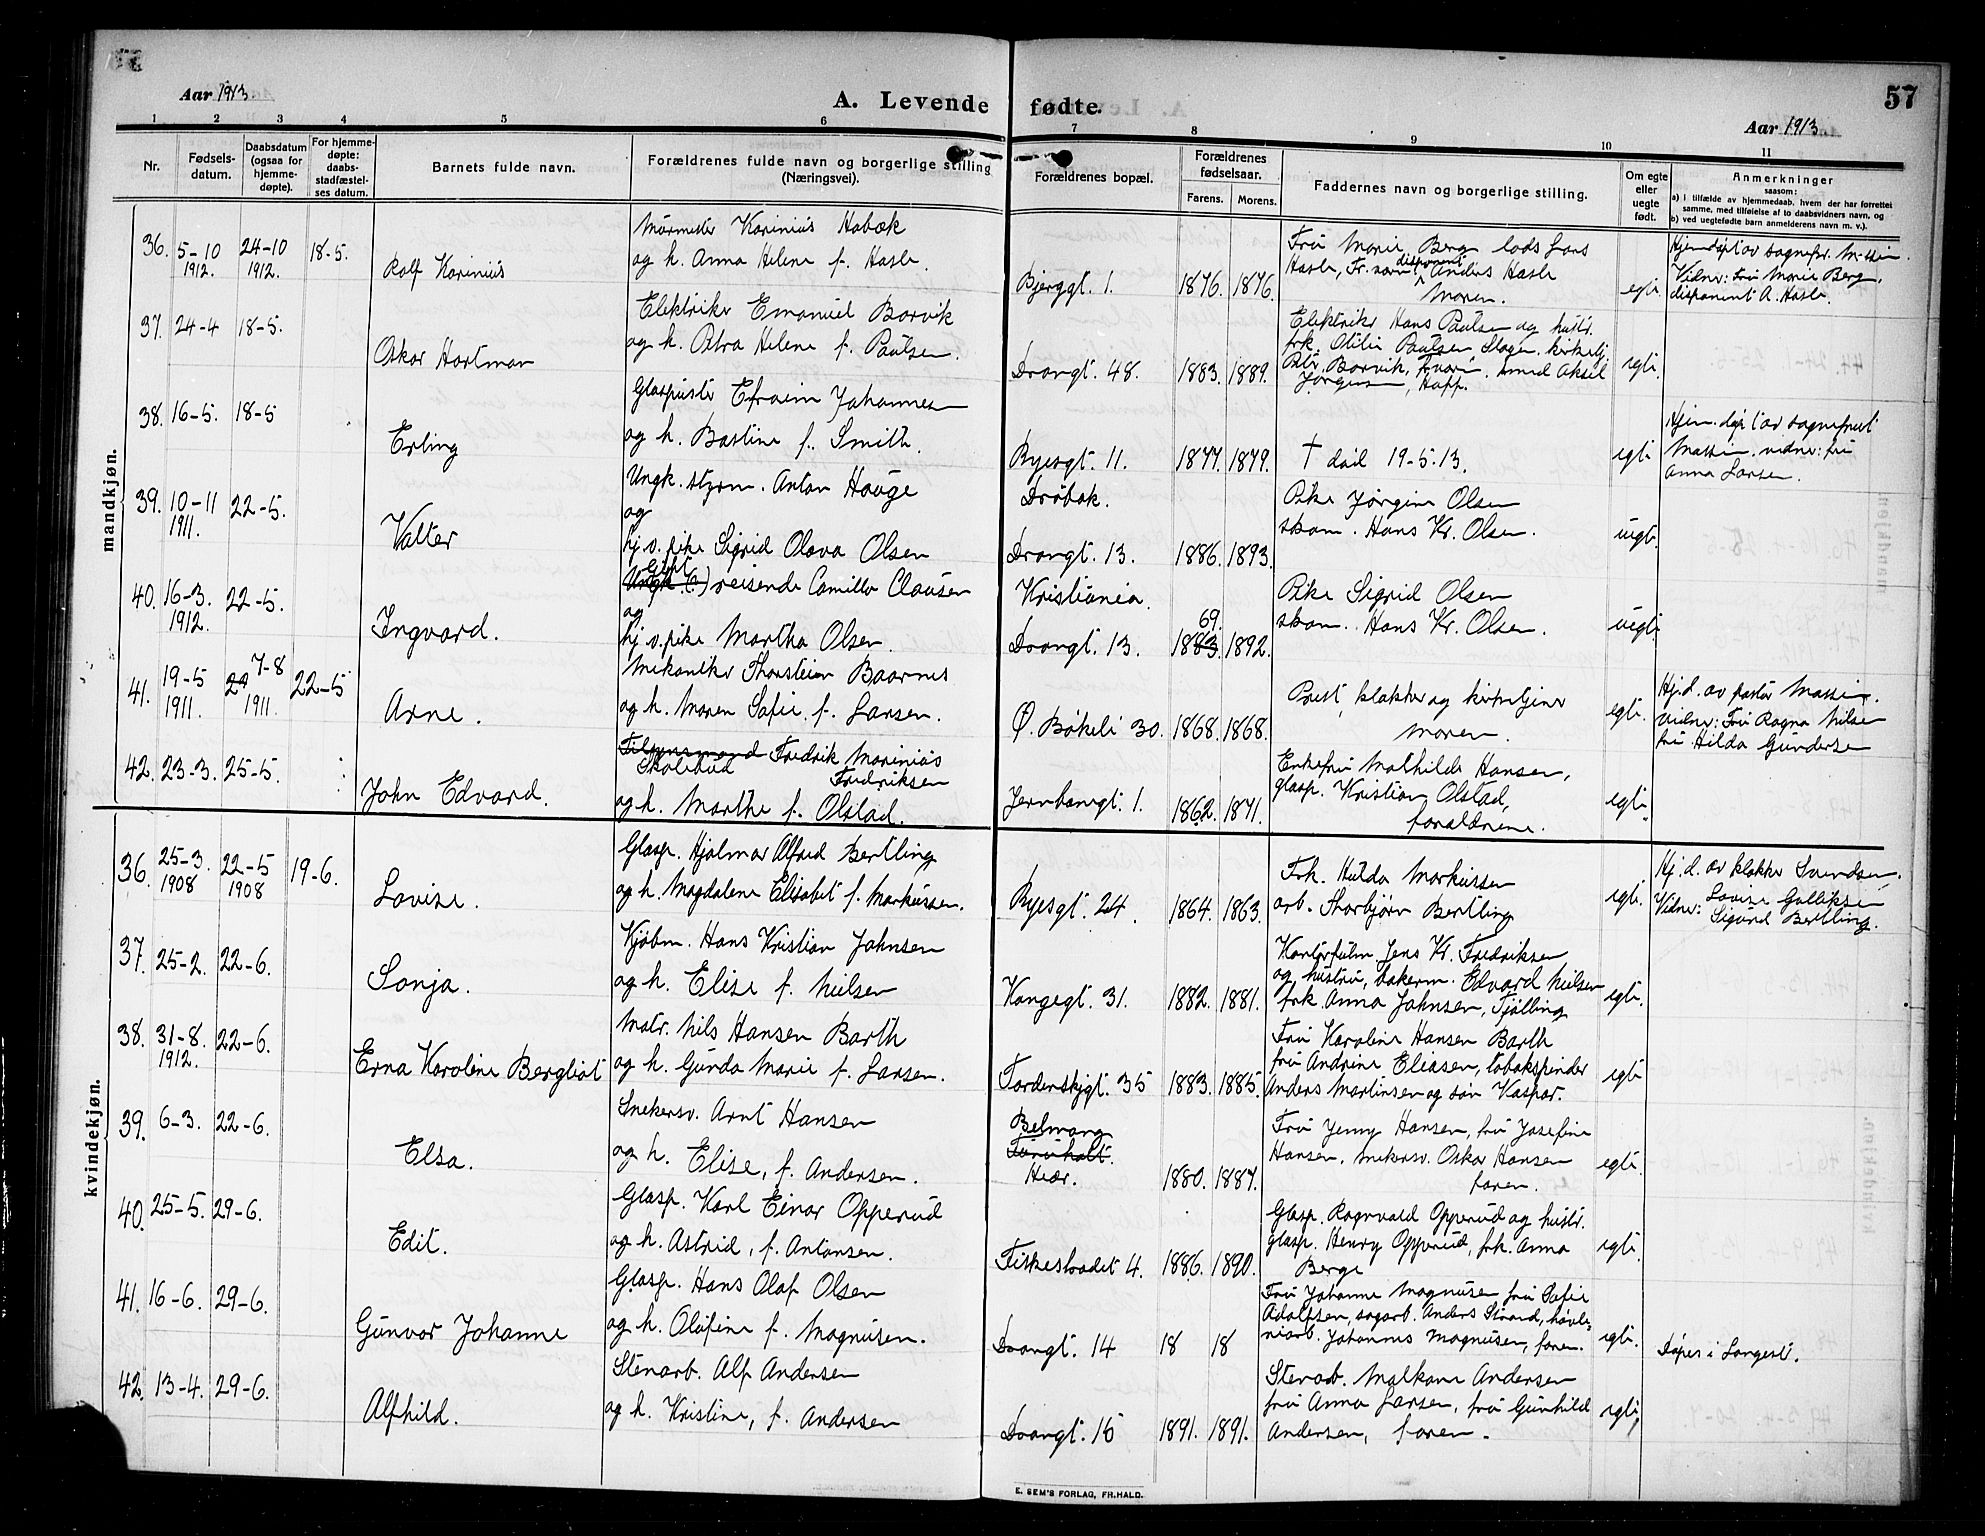 57
Aar 1913.
A. Levende fødte.
Aar 1913
1 2 3 4 5 6 7 8 9 10 11
Nr.
Fødsels-
datum.
Daabsdatum
(ogsaa for
hjemme-
døpte).
For hjemme-
døpte:
daabs-
stadfæstel-
ses datum.
Barnets fulde navn.
Forældrenes fulde navn og borgerlige stilling
(Næringsvei).
Forældrenes bopæl.
Forældrenes
fødselsaar.
Farens. Morens.
Faddernes navn og borgerlige stilling.
Om egte
eller
uegte
født.
Anmerkninger
saasom:
a) i tilfælde av hjemmedaab, hvem der har forrettet
samme, med tilføielse af to daabsvidners navn, og
b) ved uegtefødte barn anmelderens navn m. v.).
mandkjøn.
36. 5-10 1912. 24-10 1912. 18-5.
Rolf Karinius
Murmester Karinius Habæk
og h. Anna Helene f. Hasle.
Bjerggt. 1. 1876. 1876.
Fru Marie Berg lods Lars
Hasle, Fr. disponent Anders Hasle
Moren.
egte.
Vidner: fru Marie Berg,
disponent A. Hasle.
37. 24-4 18-5.
Oskar Hartman
Elektriker Emanuel Borvik
og h. Petra Helene f. Paulsen.
Drangt. 48. 1883. 1889.
Elektriker Hans Paulsen og hustr.
frk. Otilie Paulsen Slagen. kirketj.
Petr. Borvik, Tvær. smed Aksel
Jørgensen, Happ.
egte.
38. 16-5. 18-5
Erling
Glaspuster Efraim Johannesen
og h. Bastine f. Smith.
Byesgt. 11. 1877. 1879.
† død 19-5.13.
egte
Massie. vidner: fru
Anna Larsen.
39. 10-11 1911. 22-5.
Valter
Ungk. styrm. Anton Hauge
og
hj.v. pike Sigrid Olava Olsen
Drøbak.
Drangt. 13. 1886. 1893.
Pike Jørgine Olsen
skom. Hans Kr. Olsen.
uegte.
40. 16-3. 1912. 22-5.
Ingvard.
Gift
Ungk. (?) reisende Camillo Clausen
og
hj.v. pike Martha Olsen.
Kristiania.
69.
Drangt. 13. 1883. 1892.
Pike Sigrid Olsen
skom. Hans Kr. Olsen.
uegte.
41. 19-5 1911. 29 7-8 1911. 22-5
Arne.
Mekaniker Thorstein Baarnes
og h. Maren Sofie f. Larsen.
Ø. Bøkeli 30. 1868. 1868.
Prest, klokker og kirketjener
Moren.
egte.
Hj.d. av pastor Massie.
vidner: Fru Ragna Nilsen
fru Hilda Gundersen
42. 23-3. 25-5.
John Edvard.
Fredrik Marinius
Skolebud Fredriksen
og h. Marthe f. Olstad.
Jernbanegt. 1. 1862. 1871.
Enkefru Mathilde Hansen,
glasp. Kristian Olstad,
forældrene.
egte.
kvindekjøn.
36. 25-3 1908 22-5 1908 19-6.
Lovise.
Glasp. Hjalmar Alfred Bertling
og h. Magdalene Elisabet f. Markussen.
Byesgt. 24. 1864. 1863.
Frk. Hulda Markussen
arb. Thorbjørn Bertling
egte.
Hj.d. av klokker Svendsen,
Vidner: Lovise Gulliksen
Sigurd Bertling.
37. 25-2. 22-6.
Sonja.
Kjøbm. Hans Kristian Johnsen
og h. Elise f. Nielsen
Kongegt. 31. 1882. 1881.
Kontorfulm. Jens Kr. Fredriksen
og hustru, bakerm. Edvard Nielsen
frk. Anna Johnsen, Tjølling
egte.
38. 31-8. 1912. 22-6.
Erna Karoline Bergliot
Matr. Nils Hansen Barth
og h. Gunda Marie f. Larsen.
Tordenskjgt. 35 1883. 1885.
Fru Karoline Hansen Barth
fru Andrine Eliasen, tobakspinder
Anders Martinsen og søn Kaspar.
egte
39. 6-3. 22-6.
Elsa.
Snekersv. Arnt Hansen
og h. Elise, f. Andersen.
Belmang
Furuholt.
Heær. 1880. 1887.
Fru Jenny Hansen, fru Josefine
Hansen, snekersv. Oskar Hansen
faren.
egte.
40. 25-5. 29-6.
Edit.
Glasp. Karl Einar Opperud
og h. Astrid, f. Antonsen.
Fiskestradet 4. 1886. 1890.
Glasp. Ragnvald Opperud og hustr.
glasp. Henry Opperud, frk. Anna
Berge
egte.
41. 16-6. 29-6.
Gunvor Johanne
Glasp. Hans Olaf Olsen
og h. Olufine f. Magnusen.
Drangt. 14 18 18
Fru Johanne Magnusen fru Sofie
Adolfsen, sagarb. Anders Strand, høvle-
riarb. Johannes Magnusen, faren.
egte.
Døpes i Langest.
42. 13-4. 29-6.
Alfhild.
Stenarb. Alf Andersen
og h. Kristine, f. Andersen
Drangt. 15 1891. 1891.
Stenarb. Malkom Andersen
fru Anna Larsen, fru Gunhild
Andersen, faren.
egte,
E. SEM'S FORLAG, FR.HALD.